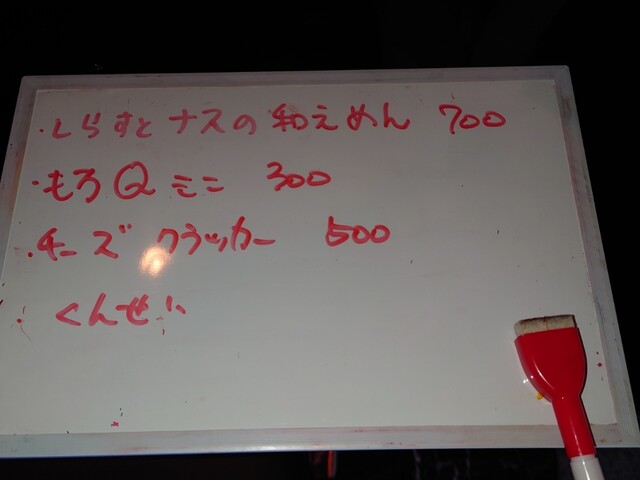 ・しらすとナスの和えめん 700
・もろQミニ 300
・チーズクラッカー 500
・くんせい